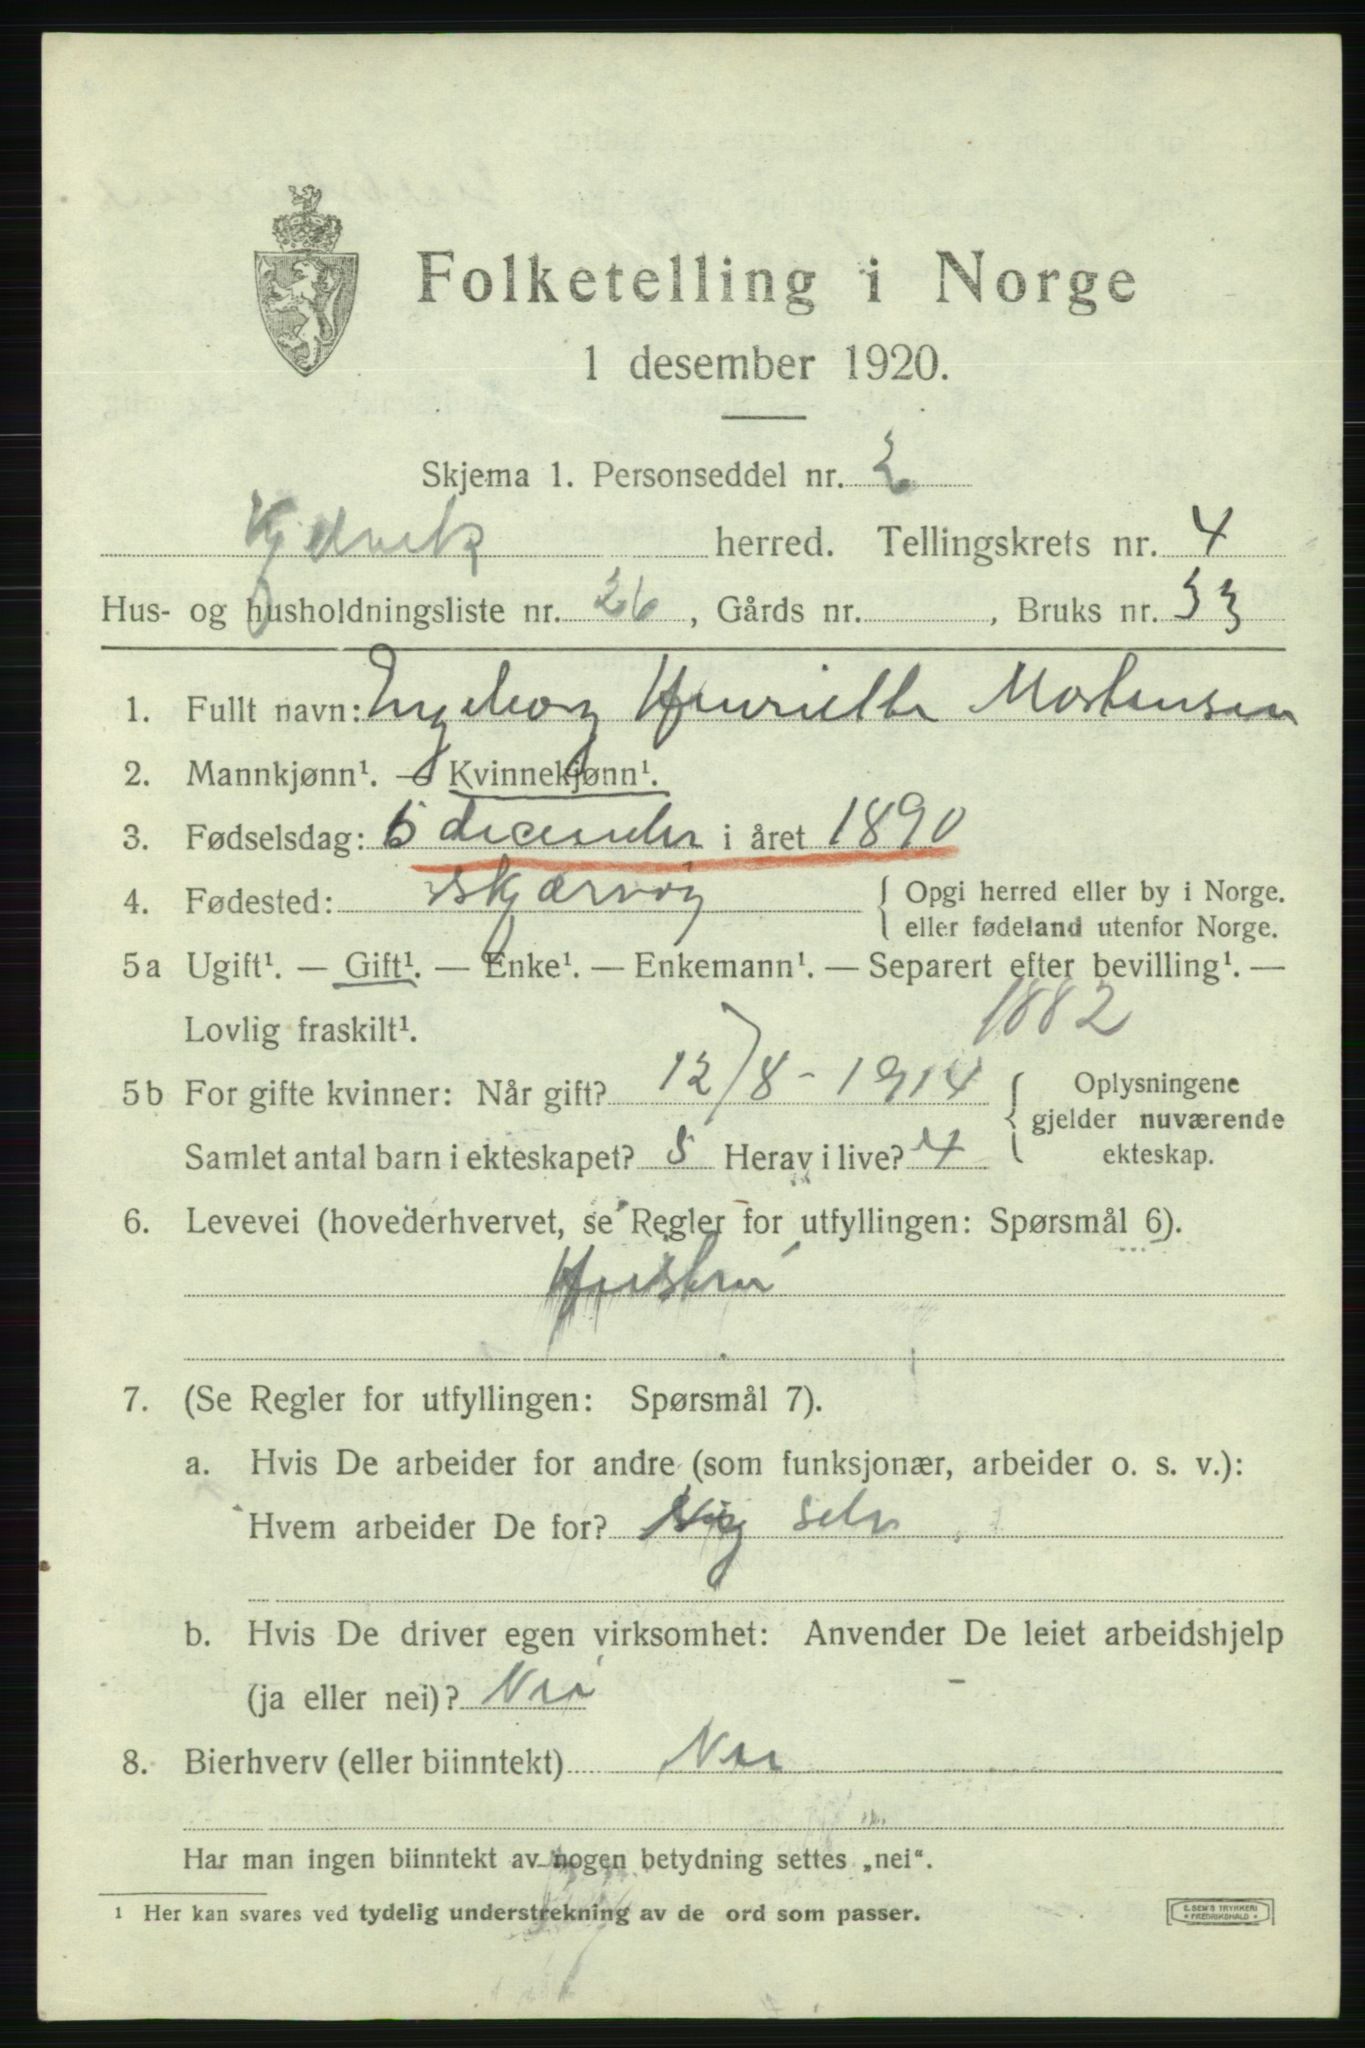 Folketelling i Norge
1 desember 1920.
Skjema 1. Personseddel nr. 2
Kjelvik herred. Tellingskrets nr. 4
Hus- og husholdningsliste nr. 26, Gårds nr. , Bruks nr. 33
1. Fullt navn: Ingeborg Henriette Mortensen
2. Mannkjønn¹. — Kvinnekjønn¹.
3. Fødselsdag: 6 december i året 1890
4. Fødested: Skjærvøy { Opgi herred eller by i Norge.
eller fødeland utenfor Norge.
5a Ugift¹. — Gift¹. — Enke¹. — Enkemann¹. — Separert efter bevilling¹. —
Lovlig fraskilt¹. 1882
5b For gifte kvinner: Når gift? 12/8-1914 { Oplysningene
gjelder nuværende
Samlet antal barn i ekteskapet? 5 Herav i live? 4 ekteskap.
6. Levevei (hovederhvervet, se Regler for utfyllingen: Spørsmål 6).
Hustru
7. (Se Regler for utfyllingen: Spørsmål 7).
a. Hvis De arbeider for andre (som funksjonær, arbeider o. s. v.):
Hvem arbeider De for? Sig selv
b. Hvis De driver egen virksomhet: Anvender De leiet arbeidshjelp
(ja eller nei)? Nei
8. Bierhverv (eller biinntekt) Nei
Har man ingen biinntekt av nogen betydning settes „nei“.
¹ Her kan svares ved tydelig understrekning av de ord som passer.
E. SEM'S TRYKKERI
• FREDRIKSHALD •